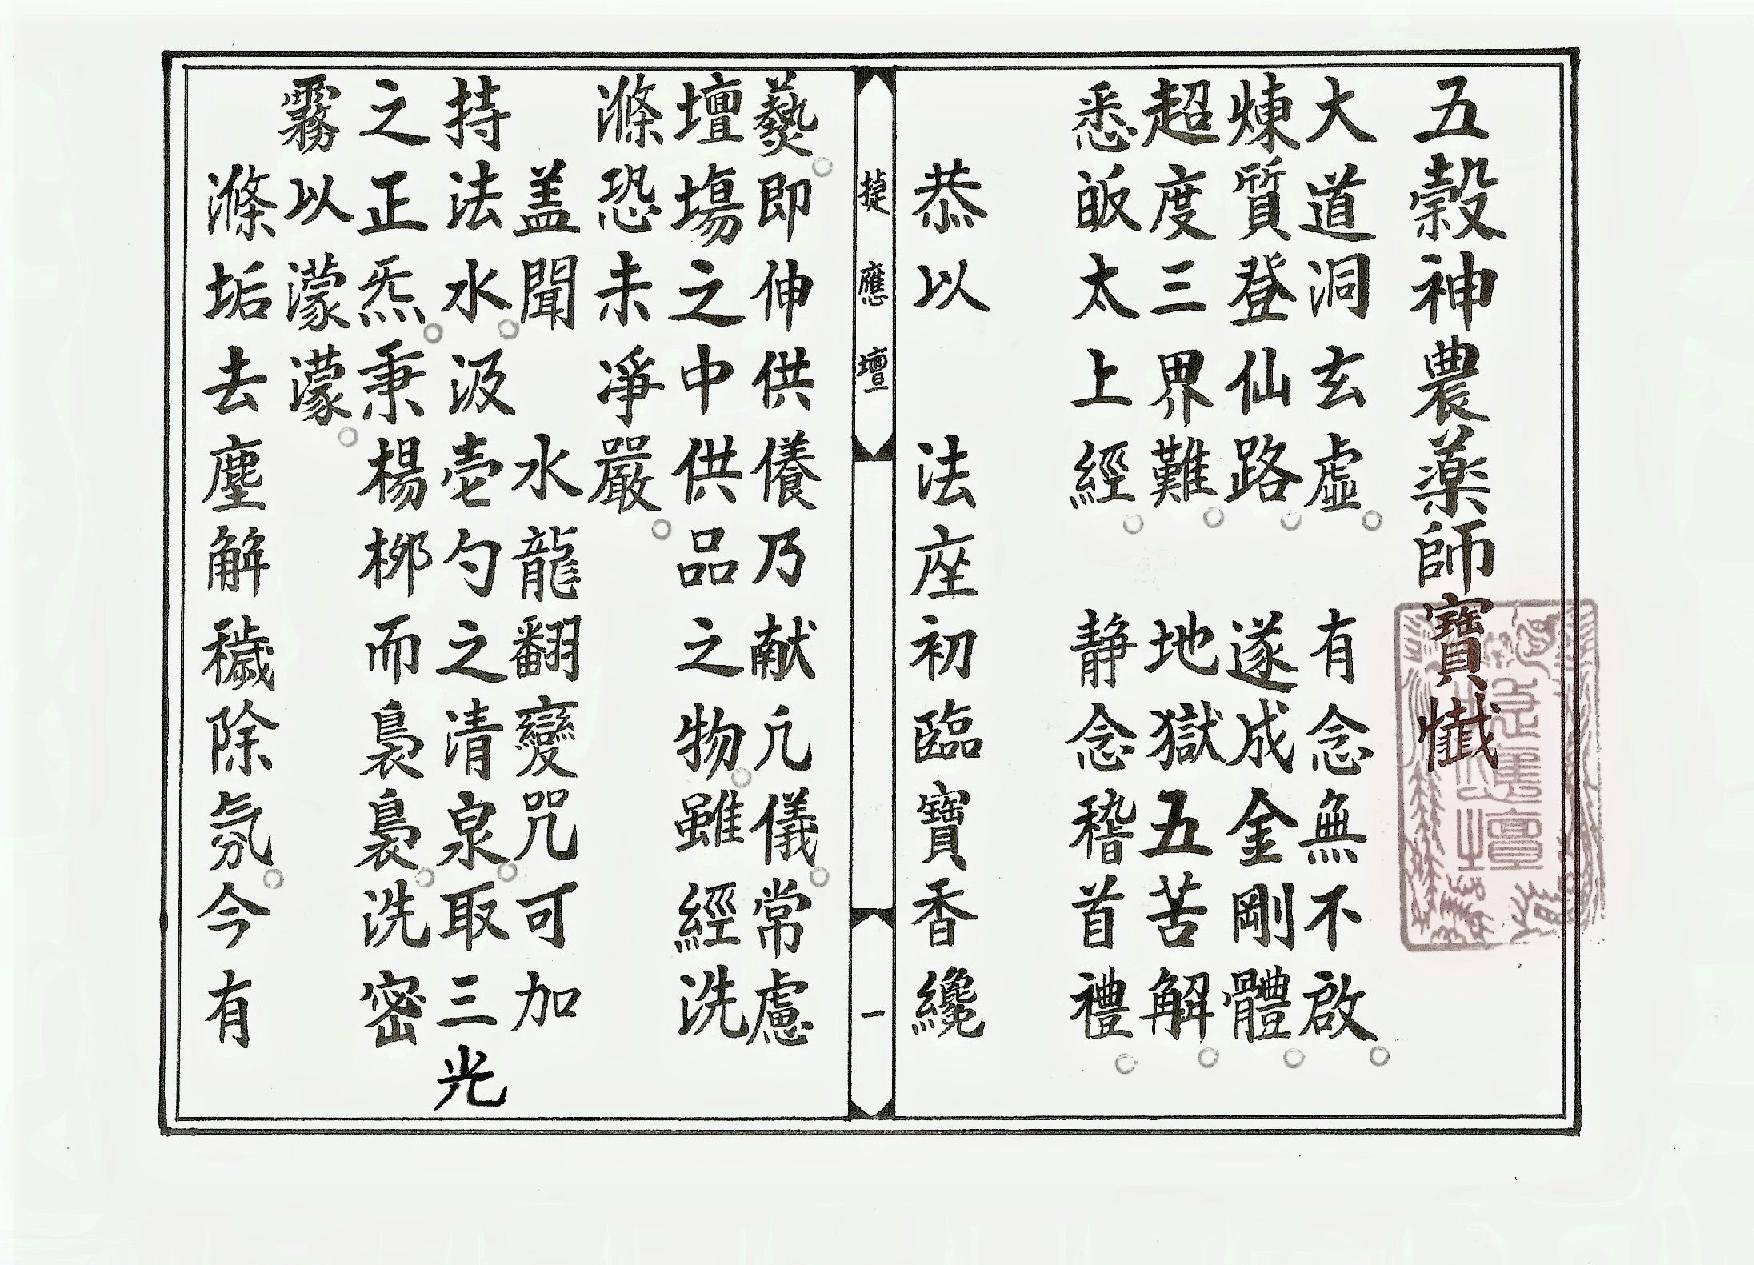 五穀神農藥師寶懺
大道洞玄虛 有念無不啟
煉質登仙路 遂成金剛體
超度三界難 地獄五苦解
悉皈太上經 静念稽首禮
恭以 法座初臨寶香纔
捷應壇 一
爇即伸供儀乃献凢儀常慮
壇塲之中供品之物雖經洗
滌恐未凈嚴
盖聞 水龍翻變咒可加
持法水汲壱勺之清泉取三光
之正炁秉楊桞而裊裊洗密
霧以濛濛
滌垢去塵解穢除氛今有